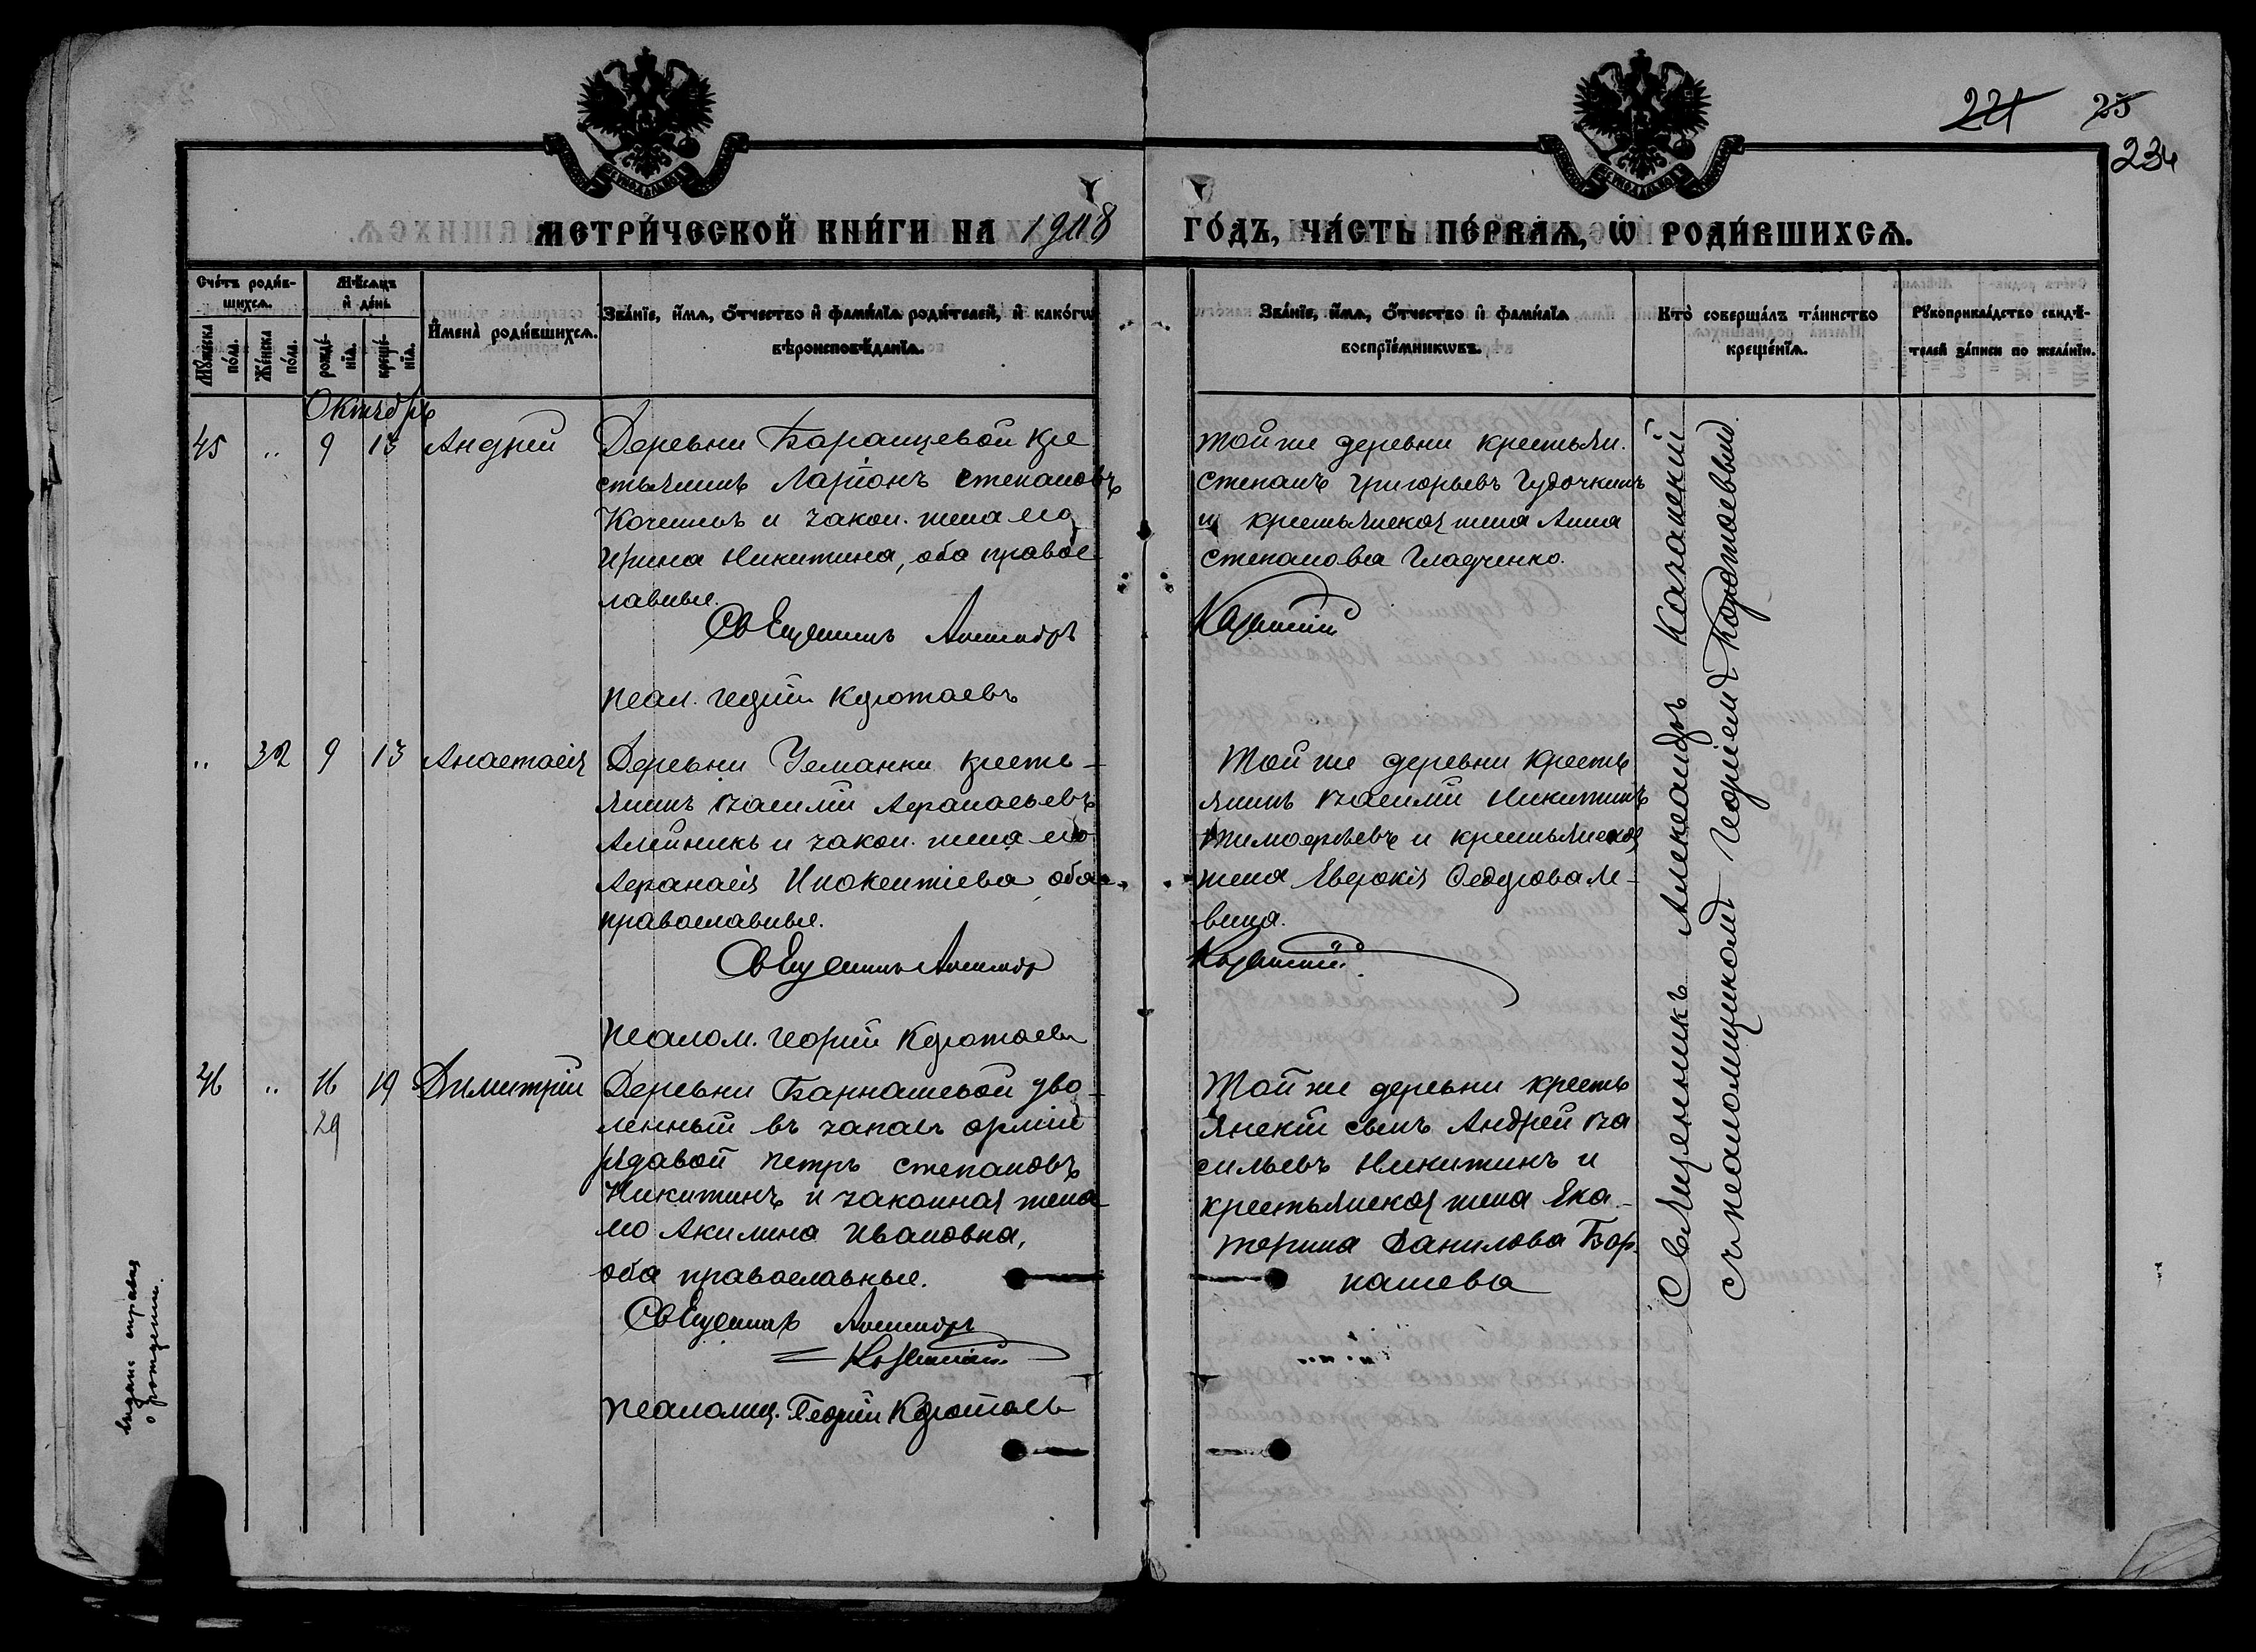 221 25
234
МЕТРИ́ЧЕСКОЙ КНИ́ГИ НА 1908 ГО́ДЪ, ЧА́СТЬ ПЕ́РВАѦ, Ѡ҆ РОДИ́ВШИХСѦ.
Сче́тъ роди́в-
шихсѧ.
Мꙋ́жеска по́ла.
Же́нска по́ла.
Мѣ́сѧцъ
и҆ де́нь
рожде́-
нїѧ.
креще́-
нїѧ.
И҆мена̀ роди́вшихсѧ.
Зва́нїе, и҆́мѧ, ѻ҆́тчество и҆ фами́лїѧ роди́телей, и҆ како́гѡ
вѣроисповѣ́данїѧ.
Зва́нїе, и҆́мѧ, ѻ҆́тчество и҆ фами́лїѧ
воспрїе́мникѡвъ.
Кто̀ соверша́лъ та́инство
креще́нїѧ.
Рꙋкоприкла́дство свидѣ́-
телей за́писи по жела́нїю.
Октябрь
45 " 9 13 Андрей
Деревни Баранцевой кре
стьянинъ Ларіонъ Степановъ
Кочинъ и закон. жена его
Ирина Никитина, оба правос-
лавные.
Священникъ Александръ
Псал. Георгій Коротаевъ
Той же деревни крестьян.
Степанъ Григорьевъ Гудочкинъ
и крестьянская жена Анна
Степановa Гладченко.
Казанскій
" 32 9 13 Анастасія
Деревни Уеманки кресть-
янинъ Василій Афанасьевъ
Алейникъ и закон. жена его
Афанасія Инокентіева, оба
православные.
Священникъ Александръ
Псалом. Георгій Коротаевъ
Той же деревни кресть
янинъ Василій Никитинъ
Тимофѣевъ и крестьянская
жена Явдокія Федорова Ле-
вина.
Казанскій
46 " 16 19 Димитрій
29
Деревни Барнашевой уво-
ленный въ запасъ арміи
рядовой Петръ Степановъ
Никитинъ и законная жена
его Акилина Ивановна,
оба православные.
Священникъ Александръ
Казанскій
Псаломщ. Георгій Коротаевъ
Той же деревни кресть
янскій сынъ Андрей Ва
сильевъ Никитинъ и
крестьянская жена Ека-
терина Данилова Бар-
нашева
Священникъ Александръ Казанскій
съ псаломщикомъ Георгіемъ Коротаевымъ
выдана справка
о рождении.